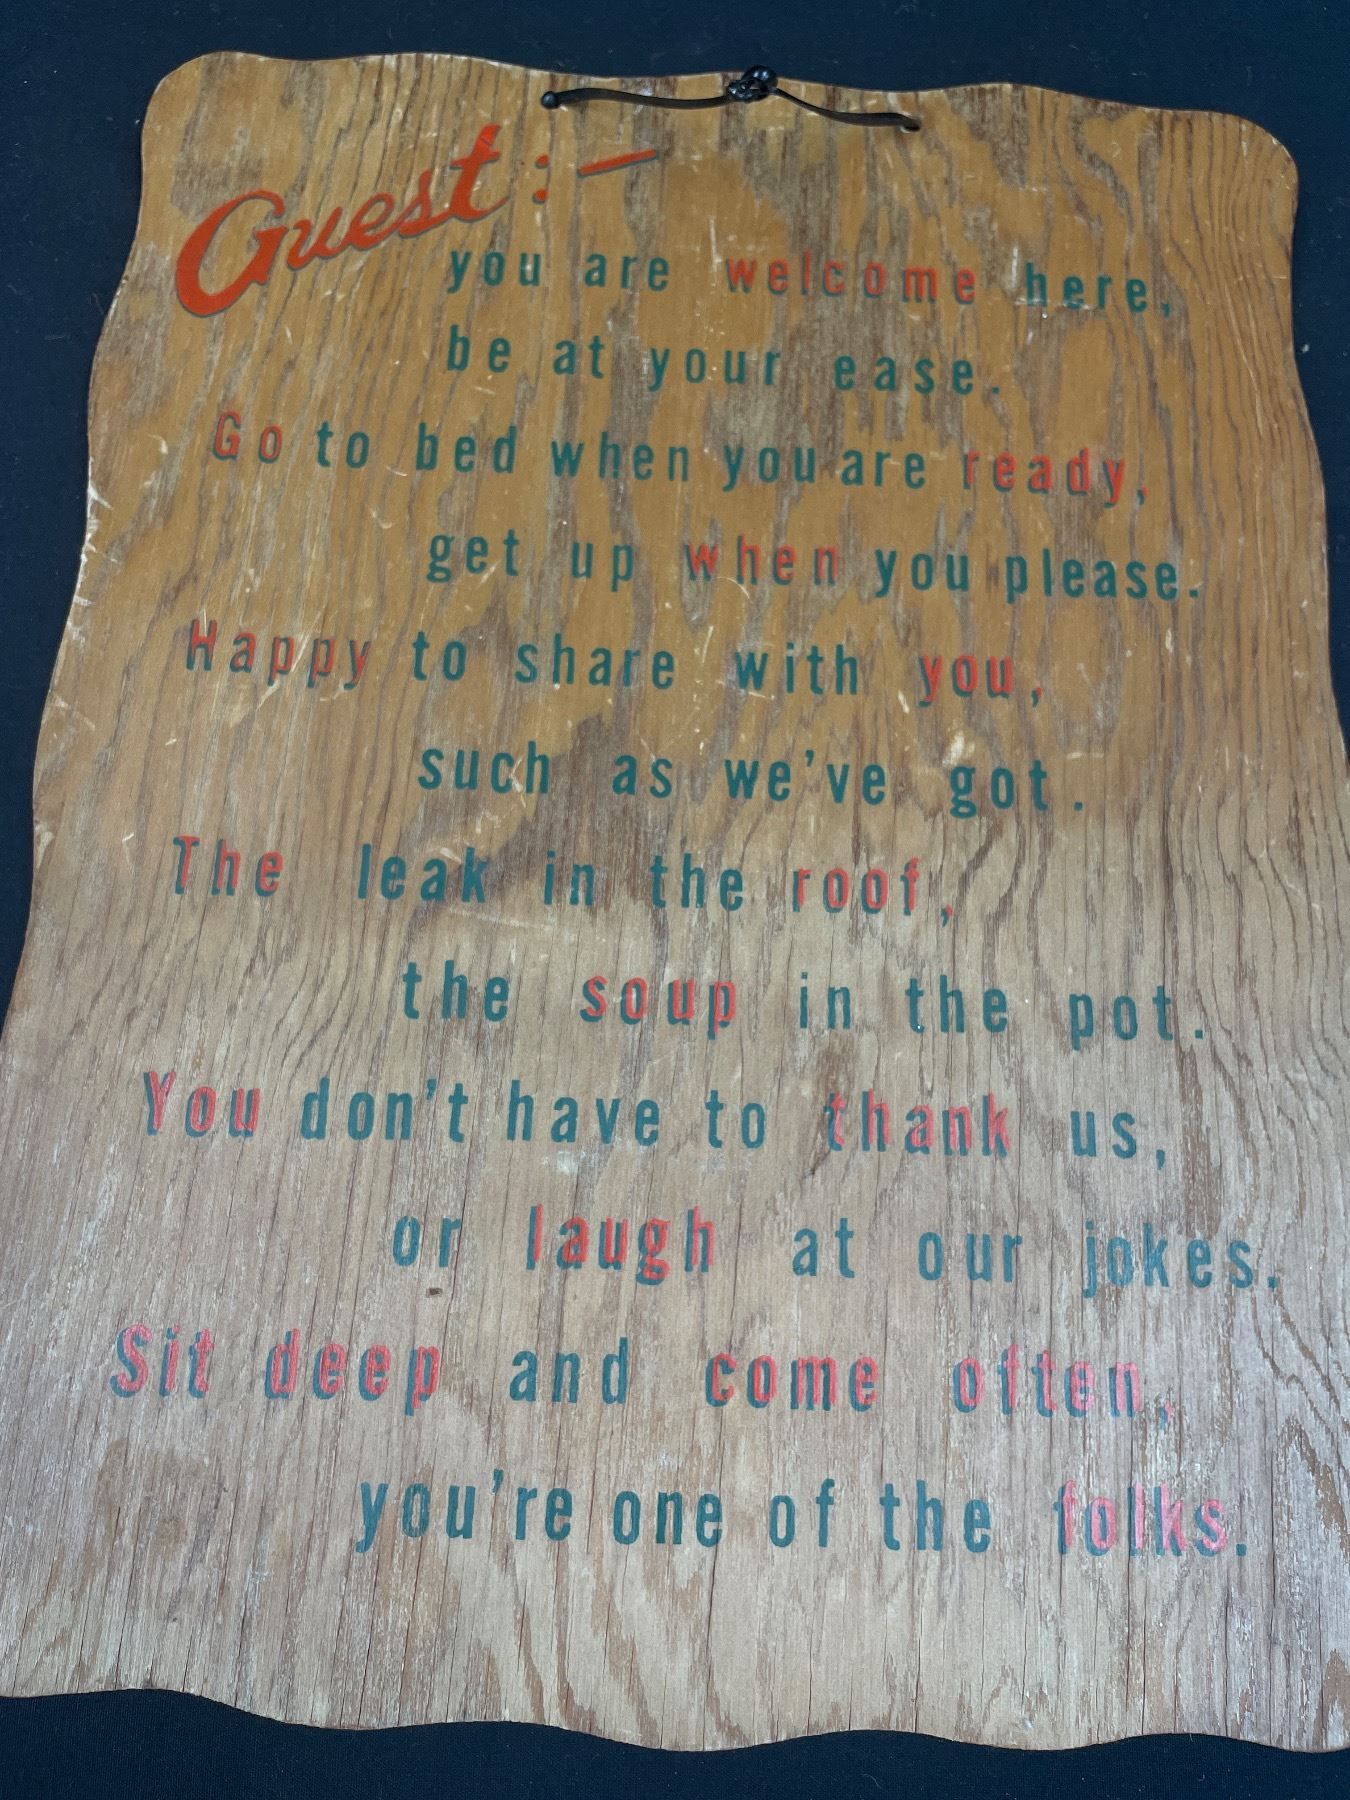 Guest:—
you are welcome here,
be at your ease.
Go to bed when you are ready,
get up when you please.
Happy to share with you,
such as we've got.
The leak in the roof,
the soup in the pot.
You don't have to thank us,
or laugh at our jokes.
Sit deep and come often,
you're one of the folks.